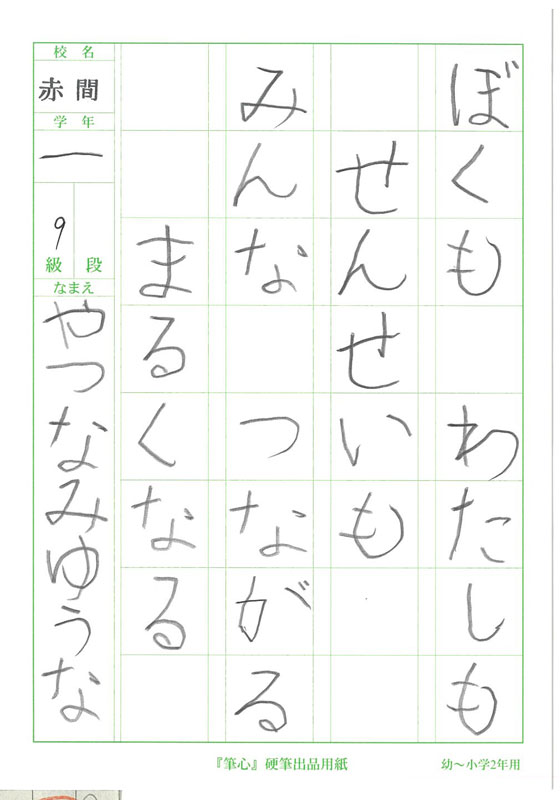 ぼくも わたしも
せんせいも
みんな つながる
まるくなる
校名
赤間
学年
一
9
級 段
なまえ
やつなみゆうな
『筆心』硬筆出品用紙
幼～小学2年用